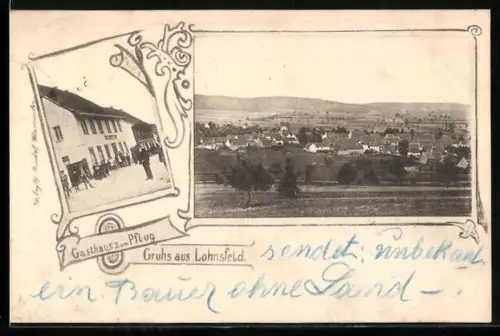 Gasthaus zum Pflug
Gruhs aus Lohnsfeld.
sendet: unbekant
ein Bauer ohne Land –.